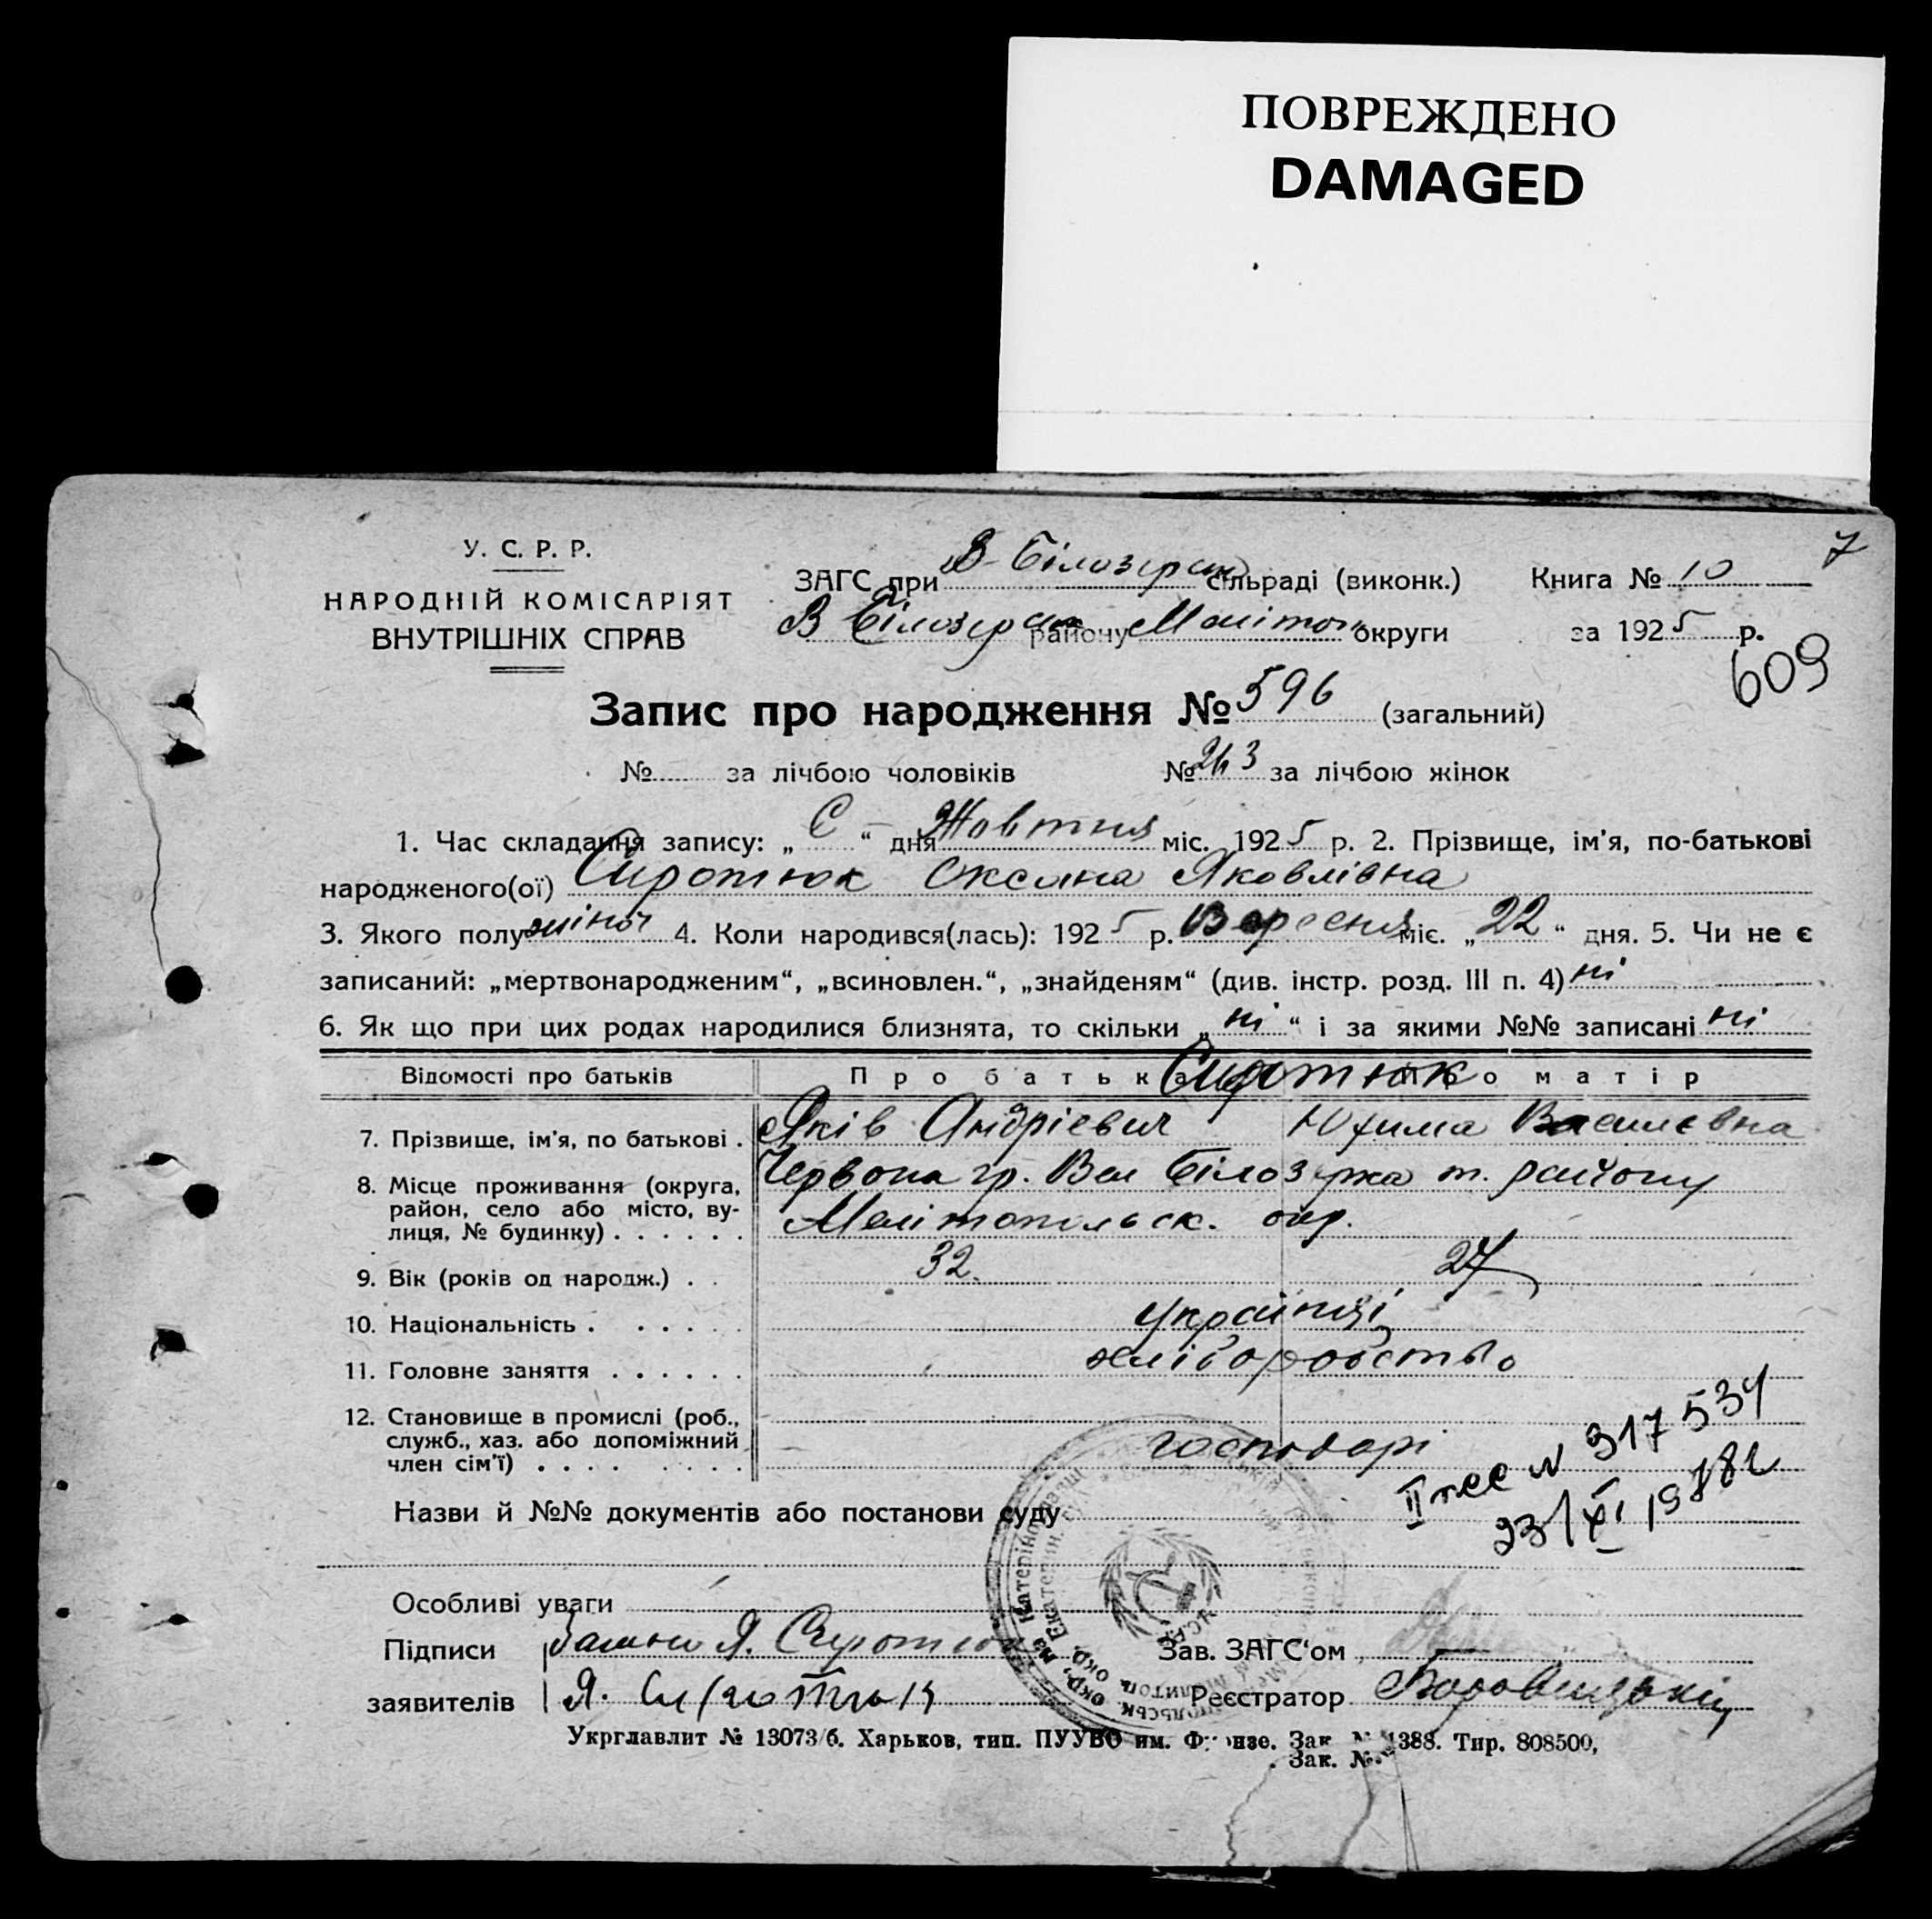 ПОВРЕЖДЕНО
DAMAGED
7
У. С. Р. Р.
НАРОДНІЙ КОМІСАРІЯТ
ВНУТРІШНІХ СПРАВ
ЗАГС при В-Білозерск сільраді (виконк.) Книга № 10
В Білозерск району Мелітоп округи за 1925 р.
609
Запис про народження № 596 (загальний)
№ за лічбою чоловіків № 263 за лічбою жінок
1. Час складання запису: „ 6 “ дня Жовтня міс. 1925 р. 2. Прізвище, ім'я, по-батькові
народженого(ої) Сиротюк Оксана Яковлівна
3. Якого полу жіноч 4. Коли народився(лась): 1925 р. Вересня міс. „ 22 “ дня. 5. Чи не є
записаний: „мертвонародженим“, „всиновлен.“, „знайденям“ (див. інстр. розд. III п. 4) ні
6. Як що при цих родах народилися близнята, то скільки „ ні “ і за якими №№ записані ні
Відомості про батьків Про батька Сиротюк Про матір
7. Прізвище, ім'я, по батькові . Яків Андрієвич Юхима Василєвна
8. Місце проживання (округа, Червона гр. Вел Білозірка т. району
район, село або місто, ву- Мелітопольск. окр.
лиця, № будинку) . . . . . .
9. Вік (років од народж.) . . 32. 27
10. Національність . . . . . . Українці
11. Головне заняття . . . . . . хліборобство
12. Становище в промислі (роб.,
служб., хаз. або допоміжний господарі
член сім'ї) . . . . . . . .
II № 317534
Назви й №№ документів або постанови суду 23/XI 1981
Особливі уваги
Підписи Я. Сиротюк Зав. ЗАГС'ом
заявителів Я. Сиротюк Реєстратор
Укрглавлит № 13073/б. Харьков, тип. ПУУВО им. Фрунзе. Зак. № 1388. Тир. 808500,
Зак. №